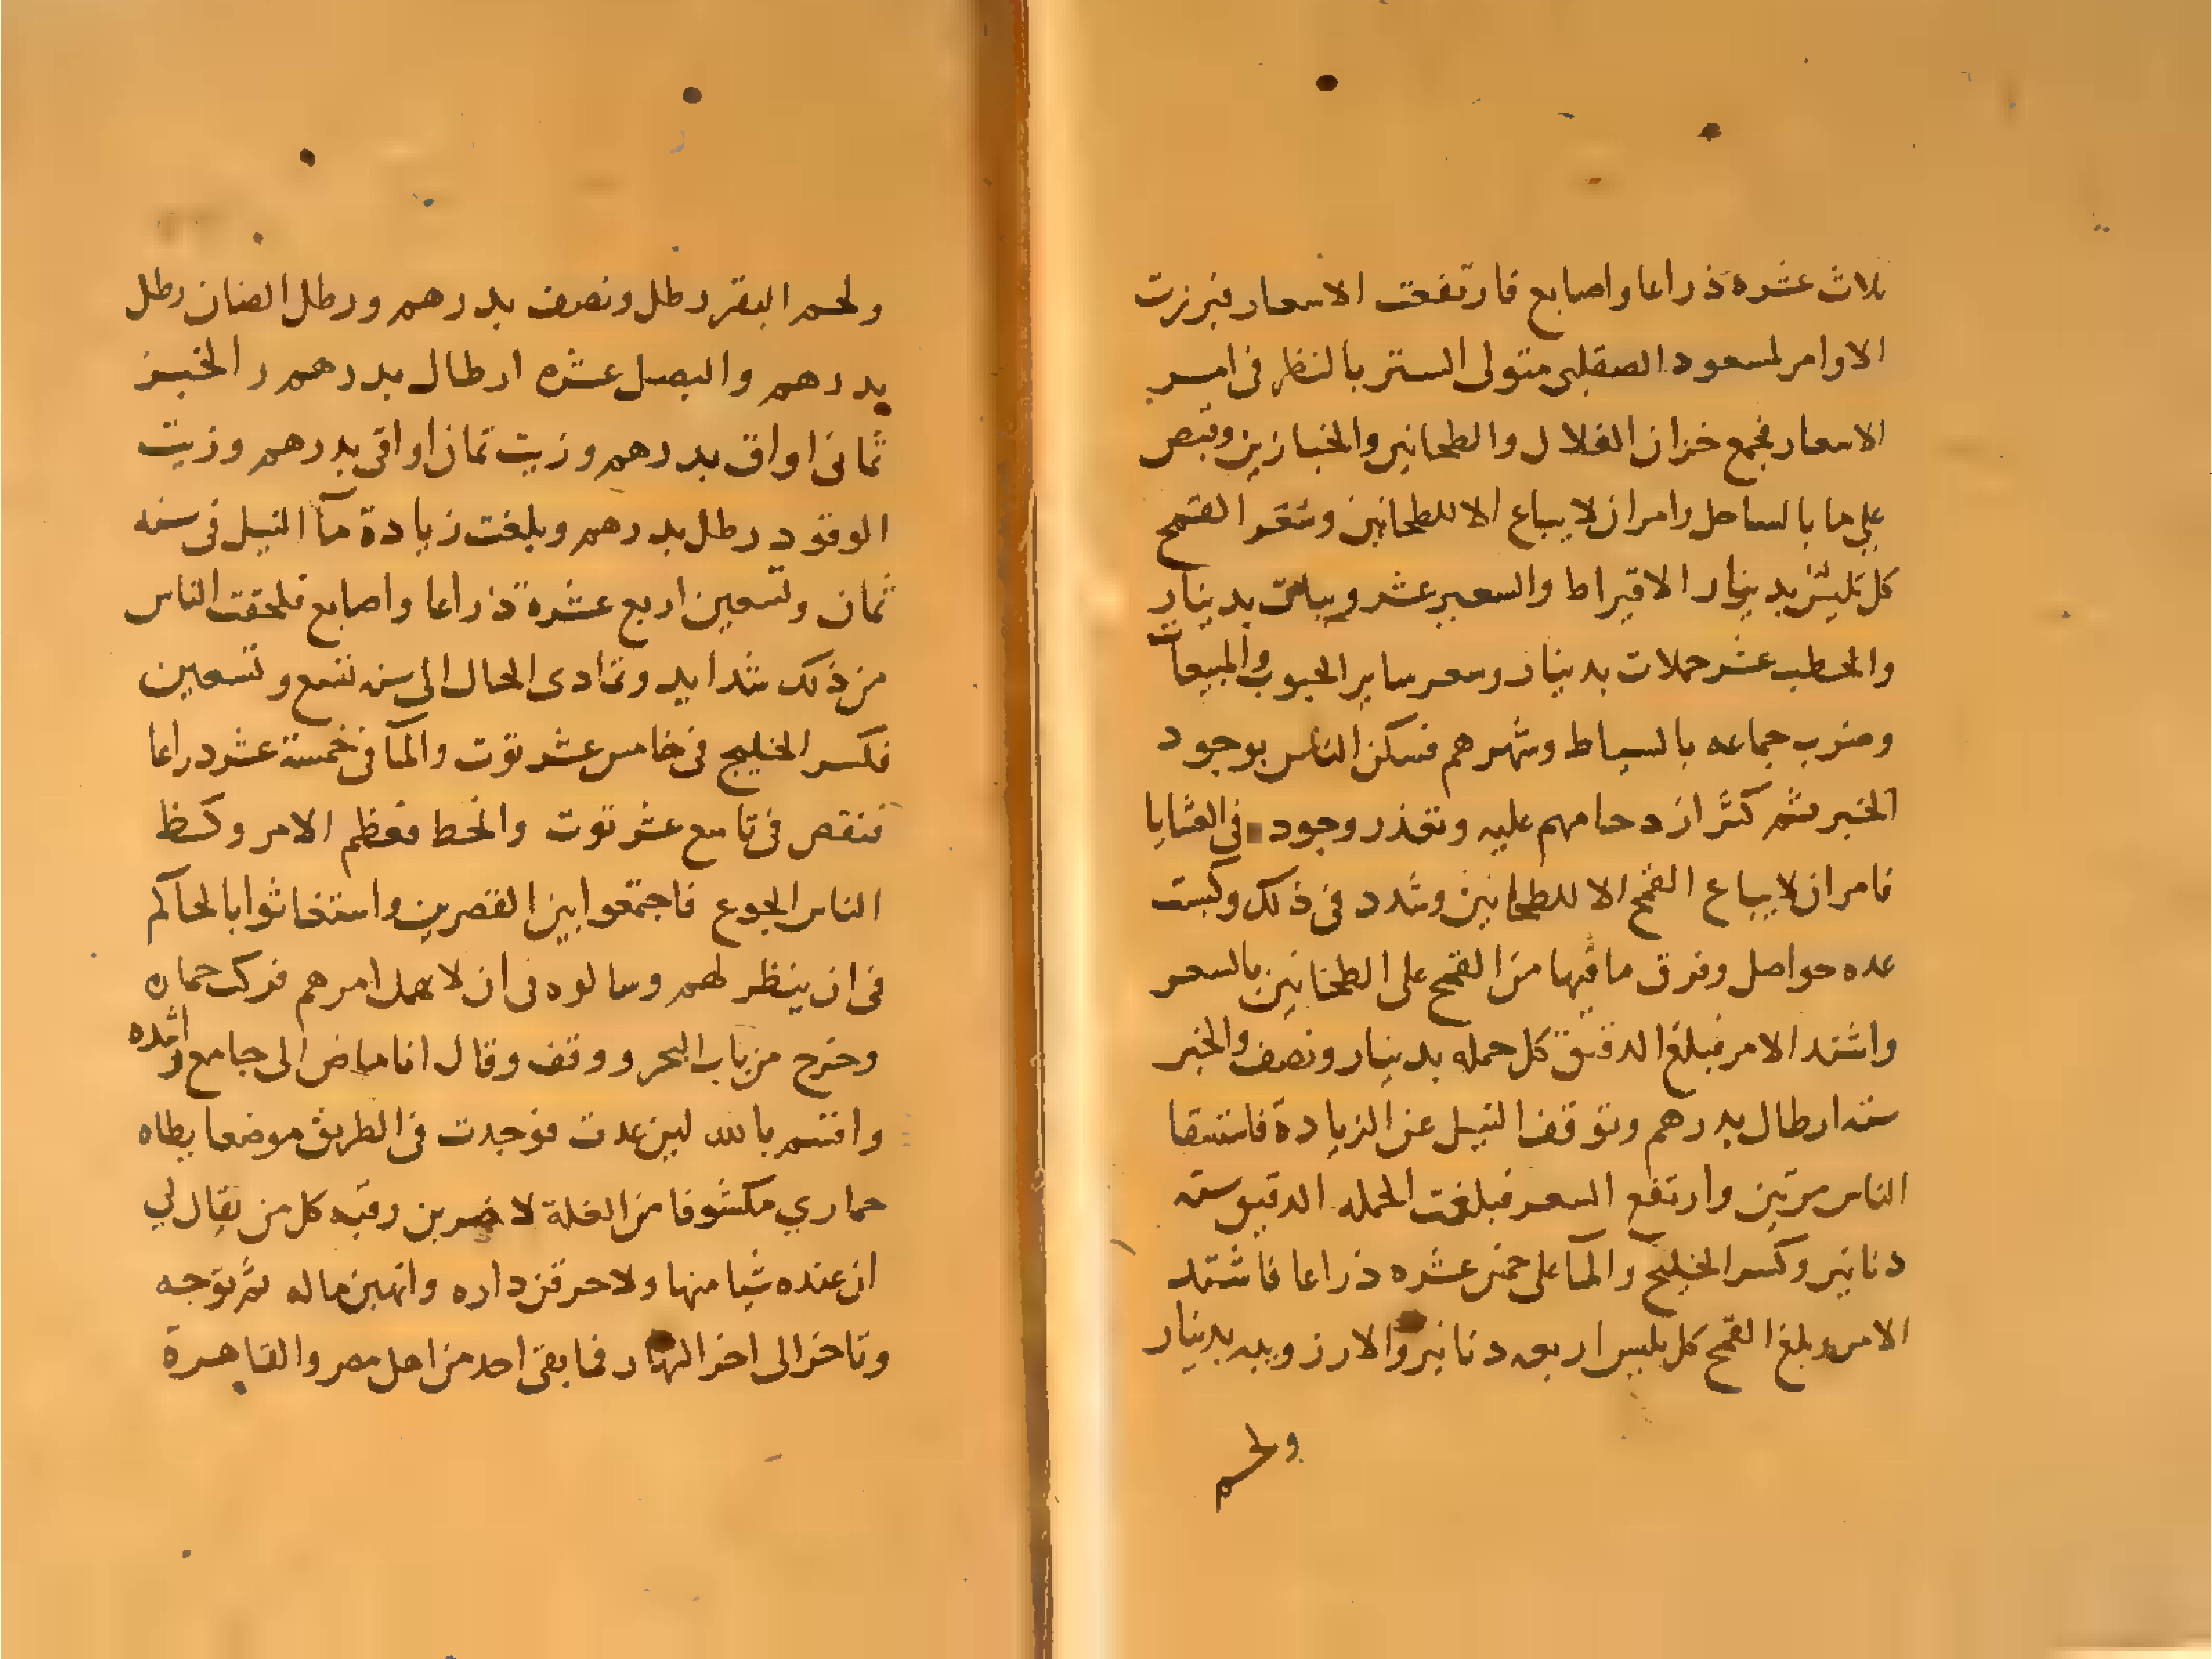 ثلاث عشره ذراعا واصابع فارتفعت الاسعار فبرزت
الاوامر لمسعود الصقلبى متولى الستر بالنظر فى امر
الاسعار فجمع خزان الغلال والطحانين والخبازين وقبض
على ما بالساحل وامر ان لا يباع الا للطحانين وسعر القمح
كل تليس بدينار الا قيراط والسعير عشر ويبات بدينار
والحطب عشر حملات بدينار وسعر ساير الحبوب والمبيعات
وضرب جماعه بالسياط وشهرهم فسكن الناس بوجود
الخبز ثم كثر ازدحامهم عليه وتعذر وجوده فى العشايا
فامر ان لا يباع القمح الا للطحانين وشدد فى ذلك وكبست
عده حواصل وفرق ما فيها من القمح على الطحانين بالسعر
واشتد الامر فبلغ الدقيق كل حمله بدينار ونصف والخبز
سته ارطال بدرهم وتوقف النيل عن الزيادة فاستسقا
الناس مرتين وارتفع السعر فبلغت الحمله الدقيق سته
دنانير وكسر الخليج والمآ على خمس عشره ذراعا فاشتد
الامر وبلغ القمح كل تليس اربعه دنانير والارز ويبه بدينار
ولحم
ولحم البقر رطل ونصف بدرهم ورطل الضان رطل
بدرهم والبصل عشره ارطال بدرهم والخبز
ثمانى اواق بدرهم وزيت ثمان اواقى بدرهم وزيت
الوقود رطل بدرهم وبلغت زيادة مآ النيل فى سنه
ثمان وتسعين اربع عشرة ذراعا واصابع فلحقت الناس
من ذلك شدايد وتمادى الحال الى سنه تسع وتسعين
فكسر الخليج فى خامس عشر توت والمآ فى خمسة عشر دراعا
فنقص فى تاسع عشر توت وانحط فعظم الامر وكظ
الناس الجوع فاجتمعوا بين القصرين واستغاثوا بالحاكم
فى ان ينظر لهم وسالوه فى ان لا يهمل امرهم فركب حماره
وخرج من باب البحر ووقف وقال انا ماض الى جامع راشده
واقسم بالله لين عدت فوجدت فى الطريق موضعا يطاه
حماري مكشوفا من الغلة لاضربن رقبه كل من يقال لي
ان عنده شيا منها ولاحرقن داره وانهبن ماله ثم توجه
وتاخر الى اخر النهار فما بقى احد من اهل مصر والقاهرة